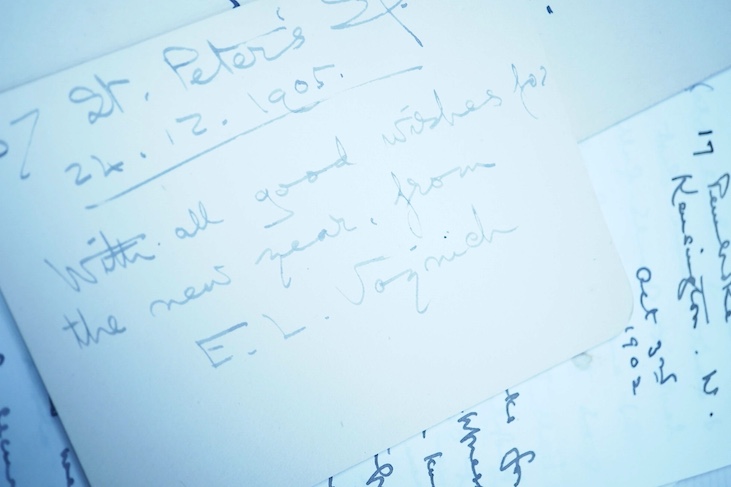 St. Peter's St.
24.12.1905.
With all good wishes for
the new year, from
E. L. Voynich
17
Kensington. W.
Oct 3rd
1902